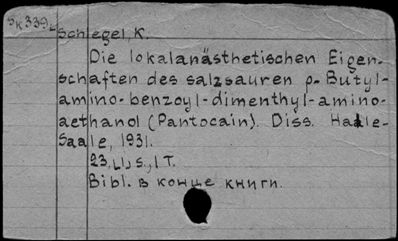 Sk339
Schlegel, K.
Die lokalanästhetischen Eigen-
schaften des salzsauren p-Butyl-
amino-benzoyl-dimenthyl-amino-
aethanol (Pantocain). Diss. Halle-
Saale, 1931.
23, LI, S., 1 T.
Bibl. в конце книги.